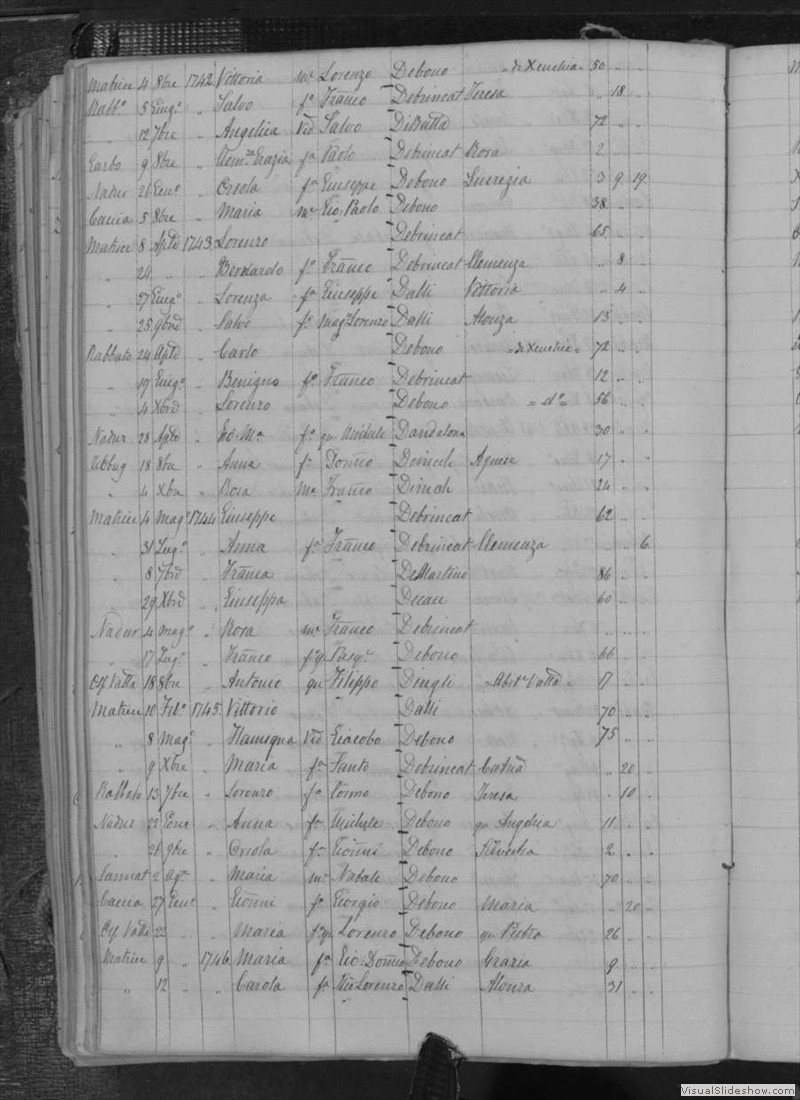 Matrice 4 8bre 1742 Vittoria mr Lorenzo Debono = di Xeuchia = 50 " "
Rabbo 5 Giugo " Salvo fo Franco Debrincat Teresa " 18 "
" 12 7bre " Angelica Vid Salvo DeBatta 72 " "
Garbo 9 8bre " Grazia fa Paolo Debrincat Rosa 2 " "
Nadur 26 Geno " Orsola fa Giuseppe Debono Lucrezia 3 9 19
Caccia 5 8bre " Maria mr Gio Paolo Debono 38 " "
Matrice 8 Aple 1743 Lorenzo Debrincat 65 " "
" 24 " " Bernardo fo Franco Debrincat Clemenza " 8 "
" 27 Giugo " Lorenza fa Giuseppe Dalli Vittoria " 4 "
" 25 9bre " Salvo fo Mago Lorenzo Dalli Alonza 13 " "
Rabbato 24 Aple " Carlo Debono = di Xeuchia = 72 " "
" 19 Giugo " Benigno fo Franco Debrincat 12 " "
" 4 Xbre " Lorenzo Debono = do = 56 " "
Nadur 28 Aple " Ma fa qm Michele Dandalona 30 " "
Zebbug 18 8bre " Anna fa Domco Agnese 17 " "
" 4 Xbre " Rosa mr Franco 24 " "
Matrice 4 Mago 1744 Giuseppe Debrincat 62 " "
" 31 Lugo " Anna fa Franco Debrincat Clemenza " " 6
" 8 7bre " Franca DeMartino 86 " "
" 29 Xbre " Giuseppa 60 " "
Nadur 4 Mago " Rosa mr Franco Debrincat " " "
" 17 Lugo " Franco fo qm Pasqe Debono 66 " "
Osp Valla 18 8bre " Antonio qm Filippo Dingli = Abite Valla = 17 " "
Matrice 10 Febo 1745 Vittorio Dalli 70 " "
" 8 Mago " Flamigna Vid Giacobo Debono 75 " "
" 9 Xbre " Maria fa Santo Debrincat Catna " 20 "
Rabbato 13 7bre " Lorenzo fo Cosmo Debono Teresa " 10 "
Nadur 22 Gene " Anna fa Michele Debono qm Angelica 11 " "
" 26 9bre " Orsola fa Gionni Debono Silvestra 2 " "
Sannat 2 Ago " Maria mr Natale Debono 70 " "
Caccia 27 Gene " Gionni fo Giorgio Debono Maria " 20 "
Osp Valla 22 " Maria fa qm Lorenzo Debono qm Pietra 26 " "
Matrice 9 " 1746 Maria fa Gio: Domco Debono Grazia 9 " "
" 12 " " Carola fa Lorenzo Dalli Alonza 31 " "
VisualSlideshow.com